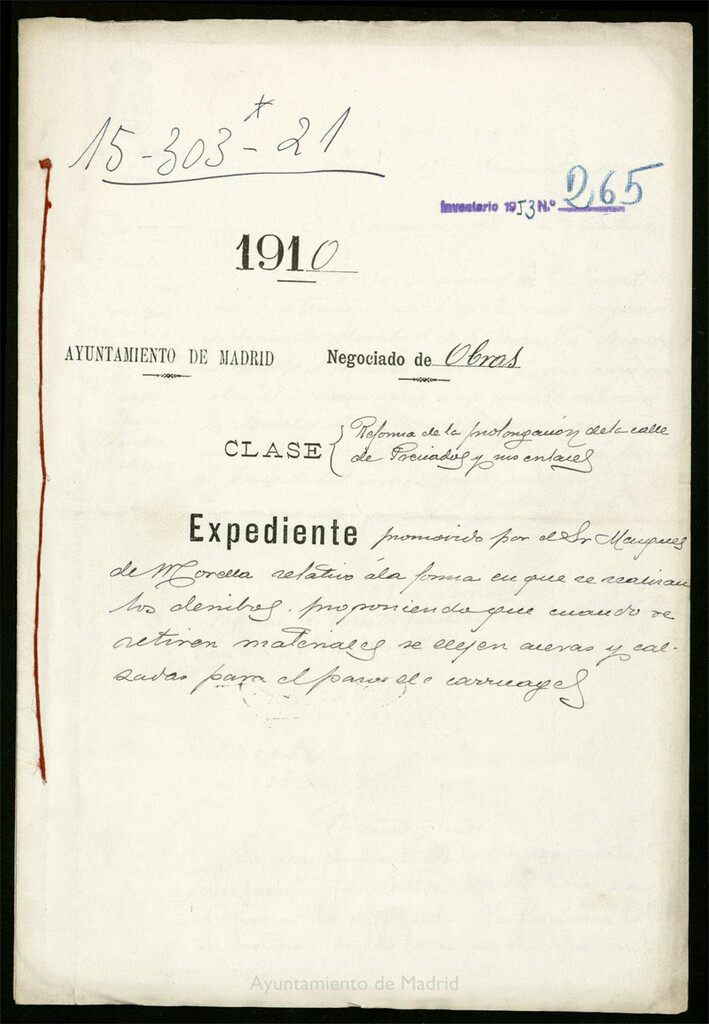 15-303-21
x
Inventario 1953 N.º 265
1910
AYUNTAMIENTO DE MADRID
Negociado de Obras
CLASE { Reforma de la prolongación de la calle
de Preciados y sus enlaces
Expediente promovido por el Sr Marques
de Morella relativo á la forma en que se realizan
los derribos, proponiendo que cuando se
retiren materiales se dejen aceras y cal-
zadas para el paso de carruages
Ayuntamiento de Madrid